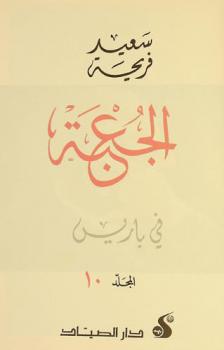 سعيد
فريحة
الجعبة
في باريس
المجلد ١٠
دار الصياد